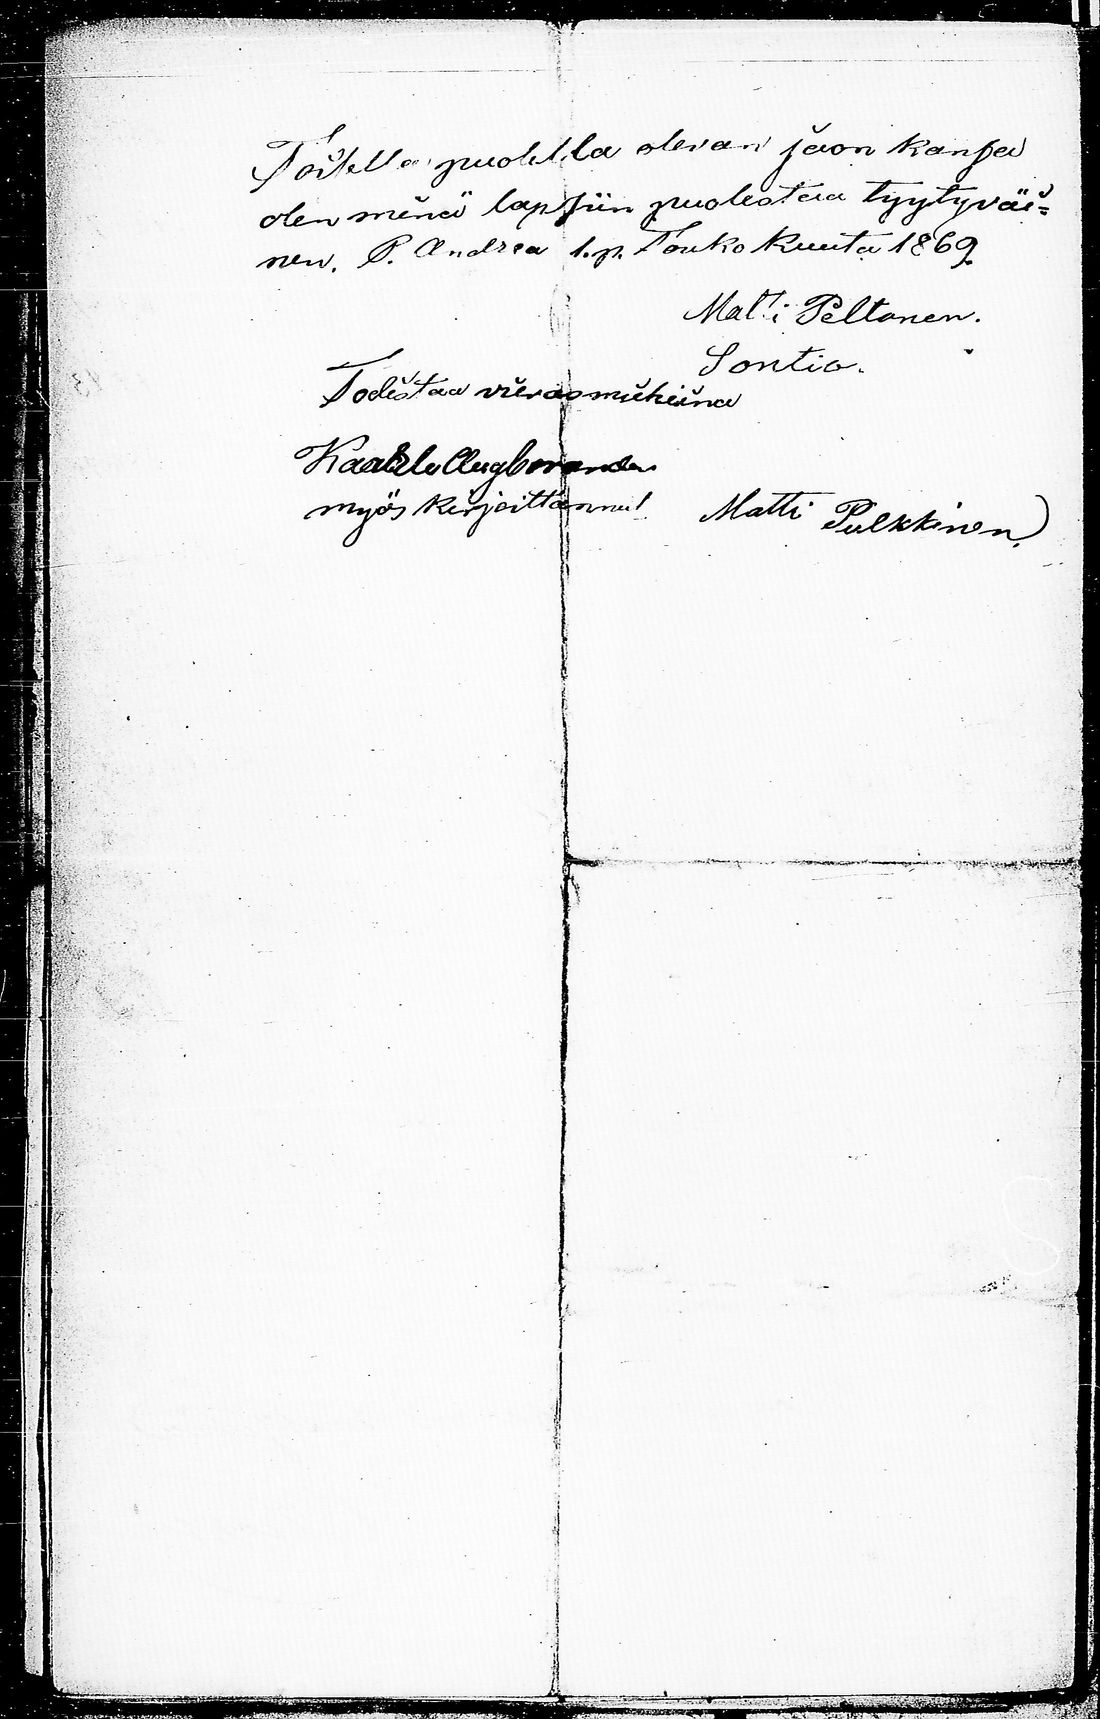 Toisella puolella olevan jaon kansa
olen minä lapsiin puolestaa tyytyväi=
nen. P. Andrea 1. p. Toukokuuta 1869.
Matti Peltonen.
Sontio.
Todistaa vierasmiehinä
Kaarle
myös kirjoittannut Matti Pulkkinen)